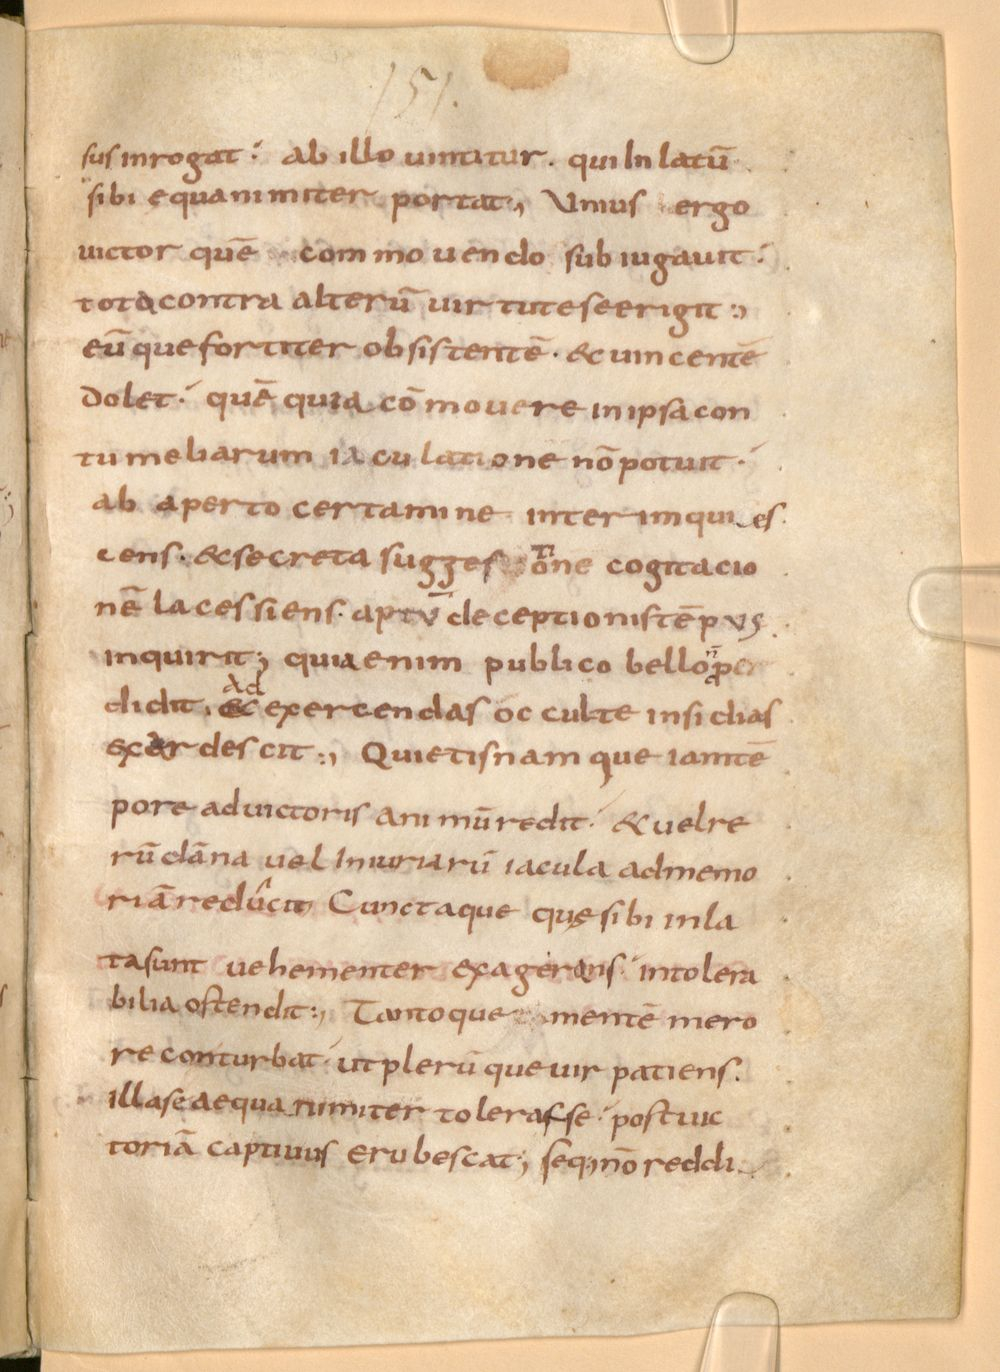 151.
sus inrogat ab illo uincitur. qui Inlatū
sibi equanimiter portat; Unius ergo
uictor quē commouendo subiugauit
tota contra alterū uirtute se erigit;
eūque fortiter obsistentē. & uincentē
dolet quē quia cōmouere in ipsa con
tumeliarum iaculatione nō potuit
ab aperto certamine interim qui es
cens. & secreta sugges one cogitacio
ti
nē lacessiens. aptū deceptionis tēpus
inquirit; quia enim publico bello per
n̄
didit. & exercendas occulte insidias
Ad
exardescit; Quietis namque iam tē
pore ad uictoris animū redit & uel re
rū dāna uel Iniuriarū iacula ad memo
riā reducit Cunctaque quę sibi inla
ta sunt uehementer exagerans intolera
bilia ostendit; Tantoque mentē mero
re conturbat ut plerūque uir patiens.
illa se aequanimiter tolerasse post uic
toriā captiuus erubescat; seq; nō reddi